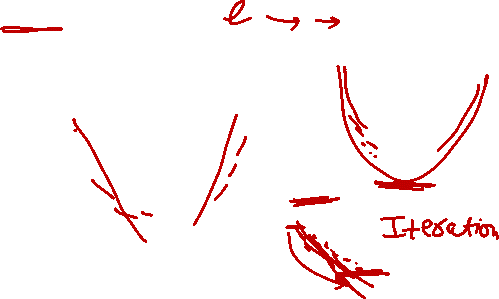 e → →
Iteration